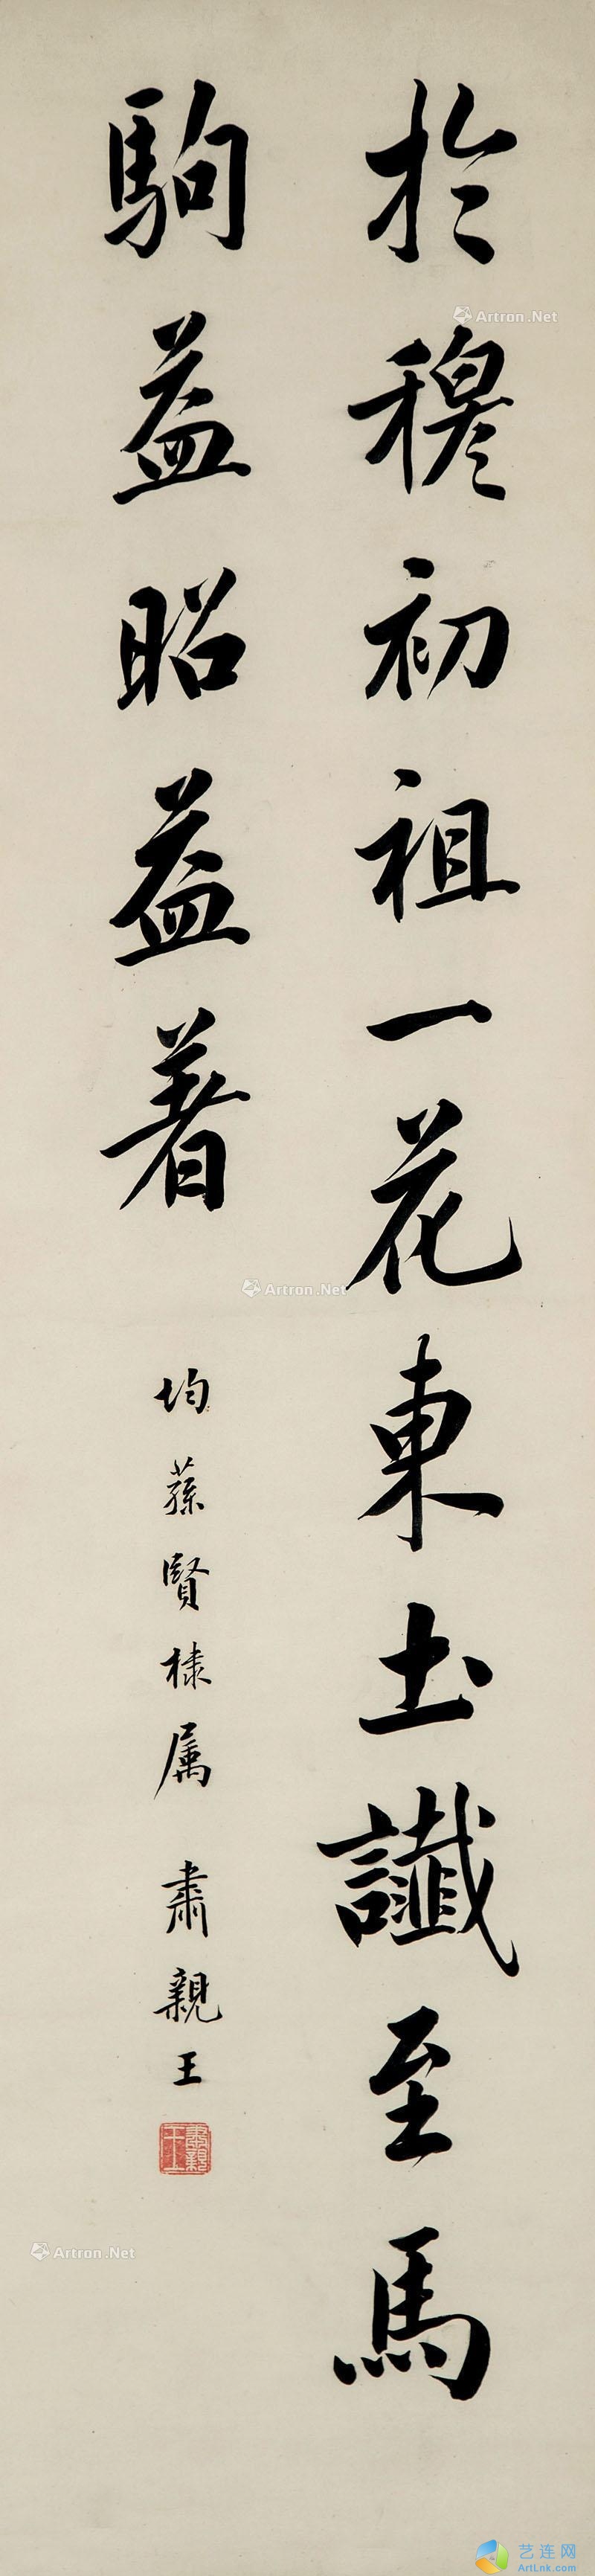 於穆初祖一花東土讖至馬
駒益昭益著
均蓀賢棣属 肅親王
肅親王
Artron.Net
Artron.Net
Artron.Net
艺连网
ArtLnk.com